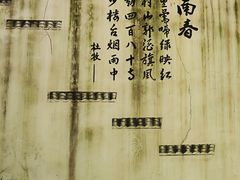 南春
里鶯啼綠映紅
村山郭酒旗風
朝四百八十寺
少楼台烟雨中
杜牧